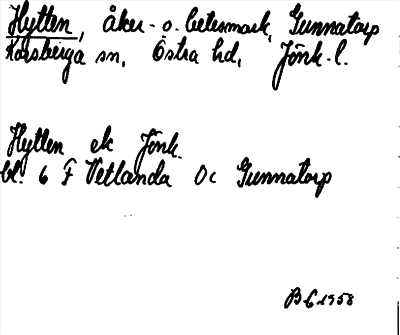 Hytten, åker- o. betesmark, Gunnatorp
Korsberga sn, Östra hd, Jönk. l.
Hytten ek Jönk.
bl. 6 F Vetlanda Oc Gunnatorp
1958